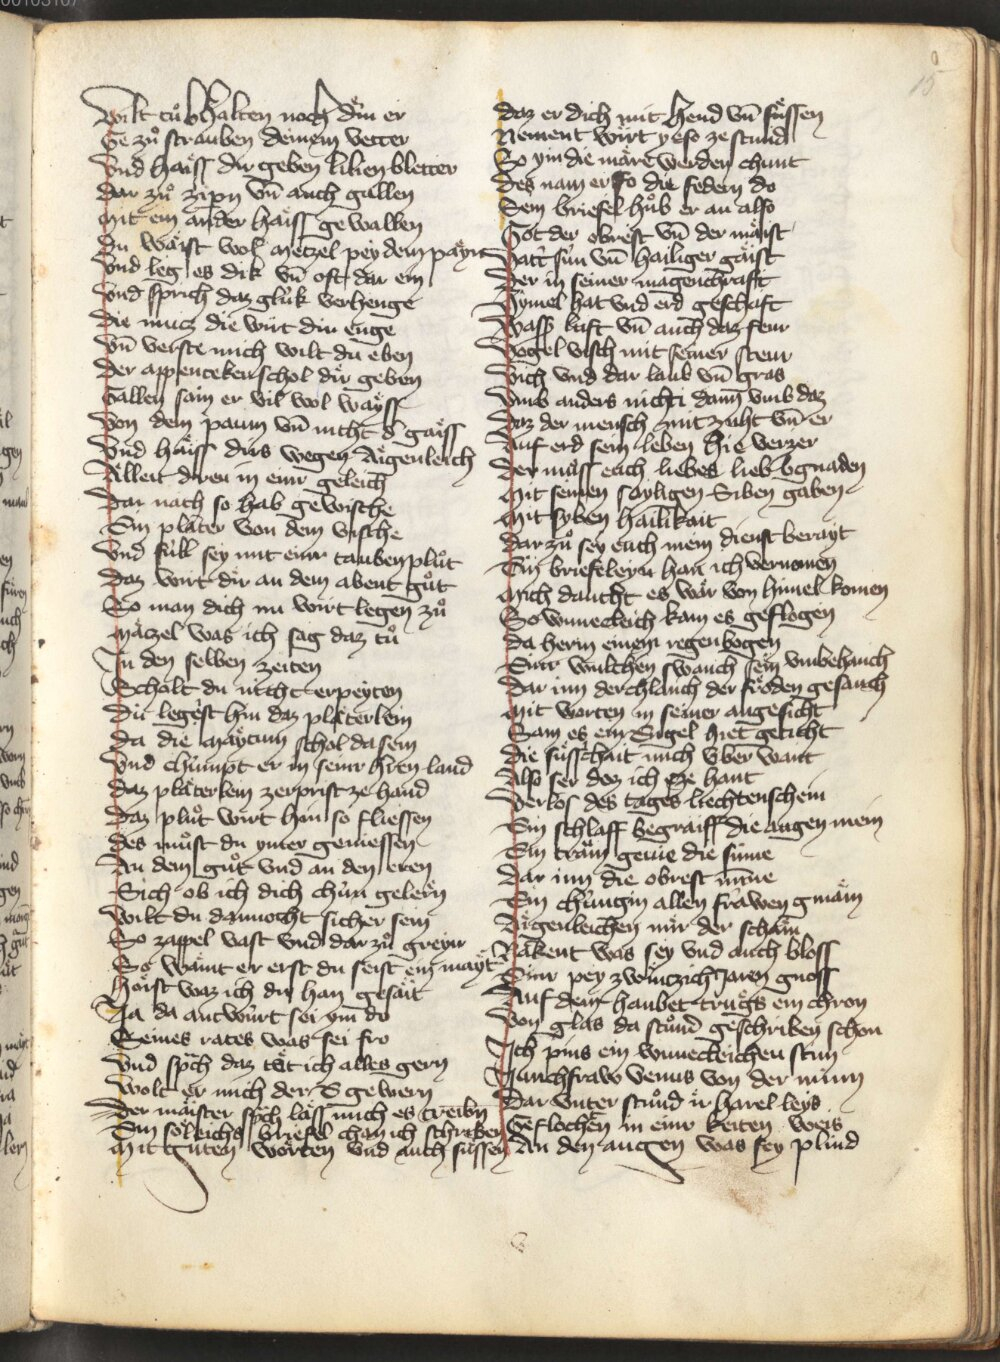 Wilt tu bhalten noch din er
Ge zu strauben deinem vetter
Vnd haiss dir geben lilien bletter
Dar zu zipn vn auch gallen
Mit ein ander haiss gewallen
Du waist wol metzel pey dem payn
Vnd leg es dik vn oft dar ein
Vnd sprich daz gluk verhenge
Die mutz die wirt din enge
Vn verste mich wilt du eben
Der appenteken schol dir geben
Gallen sam er vil wol wayss
Von dem paum vn nicht d gaiss
Vnd haiss dirs wegen Aigenleich
Allen dreu in einr geleich
Dar nach so hab gewische
Ein plater von dem vische
Vnd full sey mit einr tauben plut
Daz wirt dir an dem abent gut
So man dich nu wirt legen zu
Mätzel was ich sag daz tu
In den selben zeiten
Scholt du nicht erpeyten
Du legest hin daz pläterlein
Da die maytum schol da sein
Vnd chumpt er in seinr hren land
Daz pläterlein zerprist ze hand
Daz plut wirt hin so fliessen
Des must du ymer geniessen
An dem gut vnd an den eren
Sich ob ich dich chun gelern
Wilt du dannocht sicher sein
So zappel vast vnd dar zu greyn
So wänt er erst du seist ein mayt
Hörst waz ich dir han gesait
Ja da antwurt sei ym do
Seines rates was sei fro
Vnd sprach daz tet ich alles gern
Wolt er mich der gewern
Der maister sprach lass mich es treibn
Ein söleichs briefel chan ich schreiben
Mit guten worten vnd auch süssen
Daz er dich mit hend vn füssen
Nement wirt yeso ze stund
So ym die märe werden chunt
Des nam er so die federn do
Sein briefel hub er an also
Got der obrest vn der maist
Vatr sun vn hailiger gaist
Der in seiner magenchraft
Hymel hat vnd erd geschaft
Wass luft vn auch daz feur
Vogel visch mit seiner steur
Vich vnd dar laub vn gras
Vmb anders nichti dann vmb daz
Daz der mensch mit zucht vn er
Auf erd sein leben hie verzer
Der muss euch liebes lieb bgnaden
Mit seinen säyligen Siben gaben
Mit syben hailikait
Dar zu sey euch mein dienst berayt
Ein briefeleyn han ich vernomen
Mich daucht es wär von himel komen
So wunecleich kam es geflogen
Da herin einem regenbogen
Einr wulchen swanch sein vmbehanch
Dar inn derchlanch der fröden gesanch
Mit worten in seiner angesicht
Sam es ein Engel hiet geticht
Die süss chait mich vber want
Also ser daz ich ze hant
Verlos des tages liechten schein
Ein schlaff begraiff die augen mein
Ein traum gewe die sinne
Dar inn die obrest minne
Ein chungin allen frawen gmain
Aigenleichen mir der schain
Nakent was sey vnd auch bloss
Einr pey zwaintzich Jaren gnoss
Auf dem haubet trugs ein chron
Von glas da stund geschriben schon
Ich pins ein wunecleichen stun
Junchfraw Venus von der minn
Dar vnter stund ir harel leys
Geflochen in einr keiten weis
An den augen was sey plind